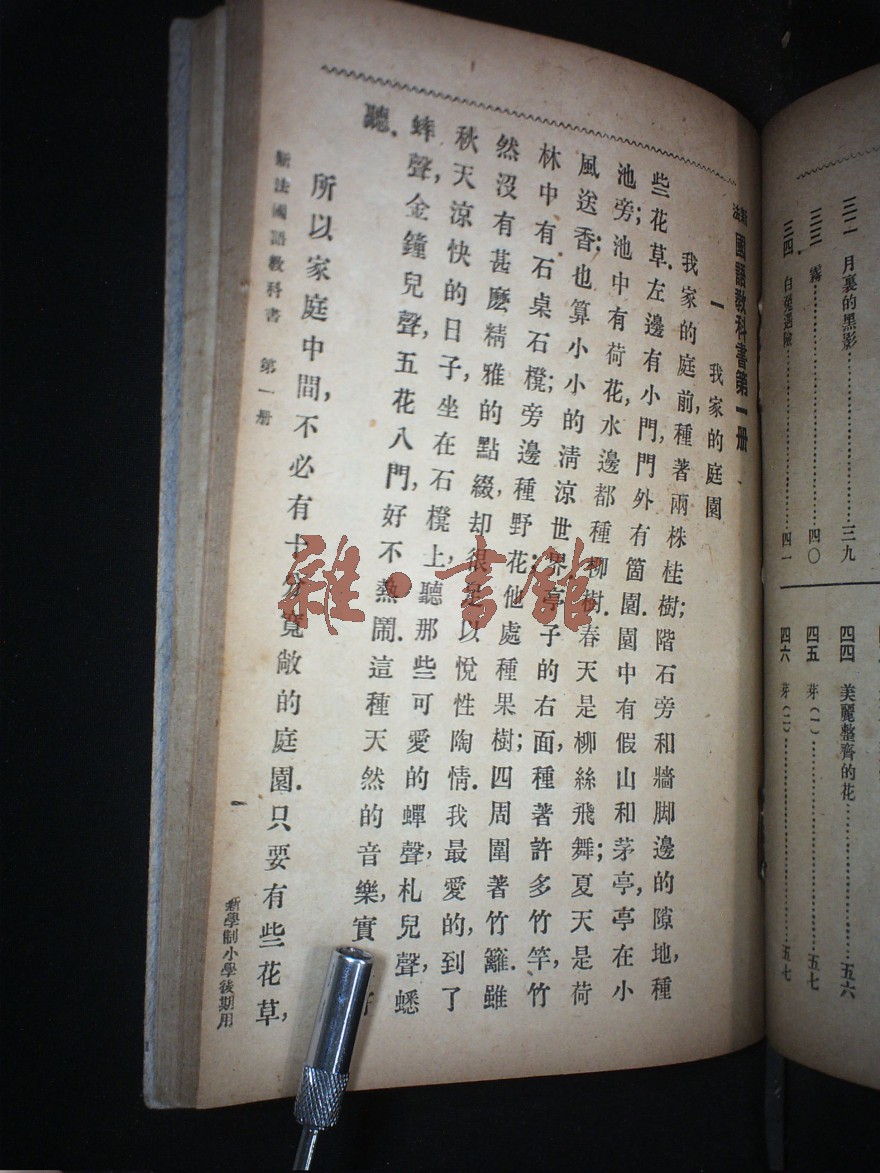 三二 月裏的黑影……三九
三三 霧……四〇
三四 白兔遇險……四一
四四 美麗整齊的花……五六
四五 芽(一)……五七
四六 芽(二)……五七
新法國語教科書第一册
一 我家的庭園
我家的庭前,種著兩株桂樹;階石旁和牆脚邊的隙地,種
些花草.左邊有小門,門外有箇園.園中有假山和茅亭,亭在小
池旁;池中有荷花,水邊都種柳樹.春天是柳絲飛舞;夏天是荷
風送香;也算小小的淸涼世界.亭子的右面,種著許多竹竿,竹
林中有石桌石櫈;旁邊種野花;他處種果樹;四周圍著竹籬.雖
然沒有甚麽精雅的點綴,却很足以悅性陶情.我最愛的,到了
秋天涼快的日子,坐在石櫈上,聽那些可愛的蟬聲,札兒聲,蟋
蟀聲,金鐘兒聲,五花八門,好不熱鬧.這種天然的音樂,實
聽.
所以家庭中間,不必有十分寬敞的庭園.只要有些花草,
新法國語教科書 第一册
一
新學制小學後期用
雜·書館